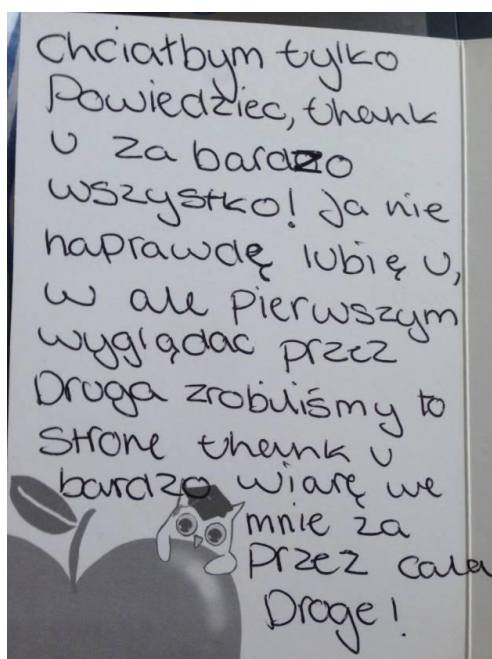 Chciałbym tylko
Powiedziec, thank
U za bardzo
wszystko! Ja nie
naprawdę lubię U,
w ale pierwszym
wyglądac przez
Droga zrobiliśmy to
strone thank U
bardzo wiarę we
mnie za
przez cała
Droge!